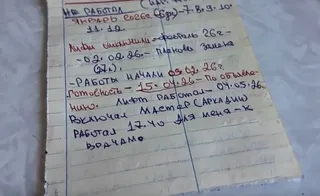 НЕ РАБОТАЛ
ЯНВАРЬ 2026г 7-8-9-10-
11. 12.
Лифт отключили - февраль 26г
-02.02.26- планова замена
-РАБОТЫ НАЧАЛИ 09.02.26г
Готовность - 15.04.26 - По объявле-
нию. Лифт Работал - 04.05.26
Включал МАСТЕР (АРКАДИЙ)
РАБОТАЛ 17.40 для меня - к
ВРАЧАМ